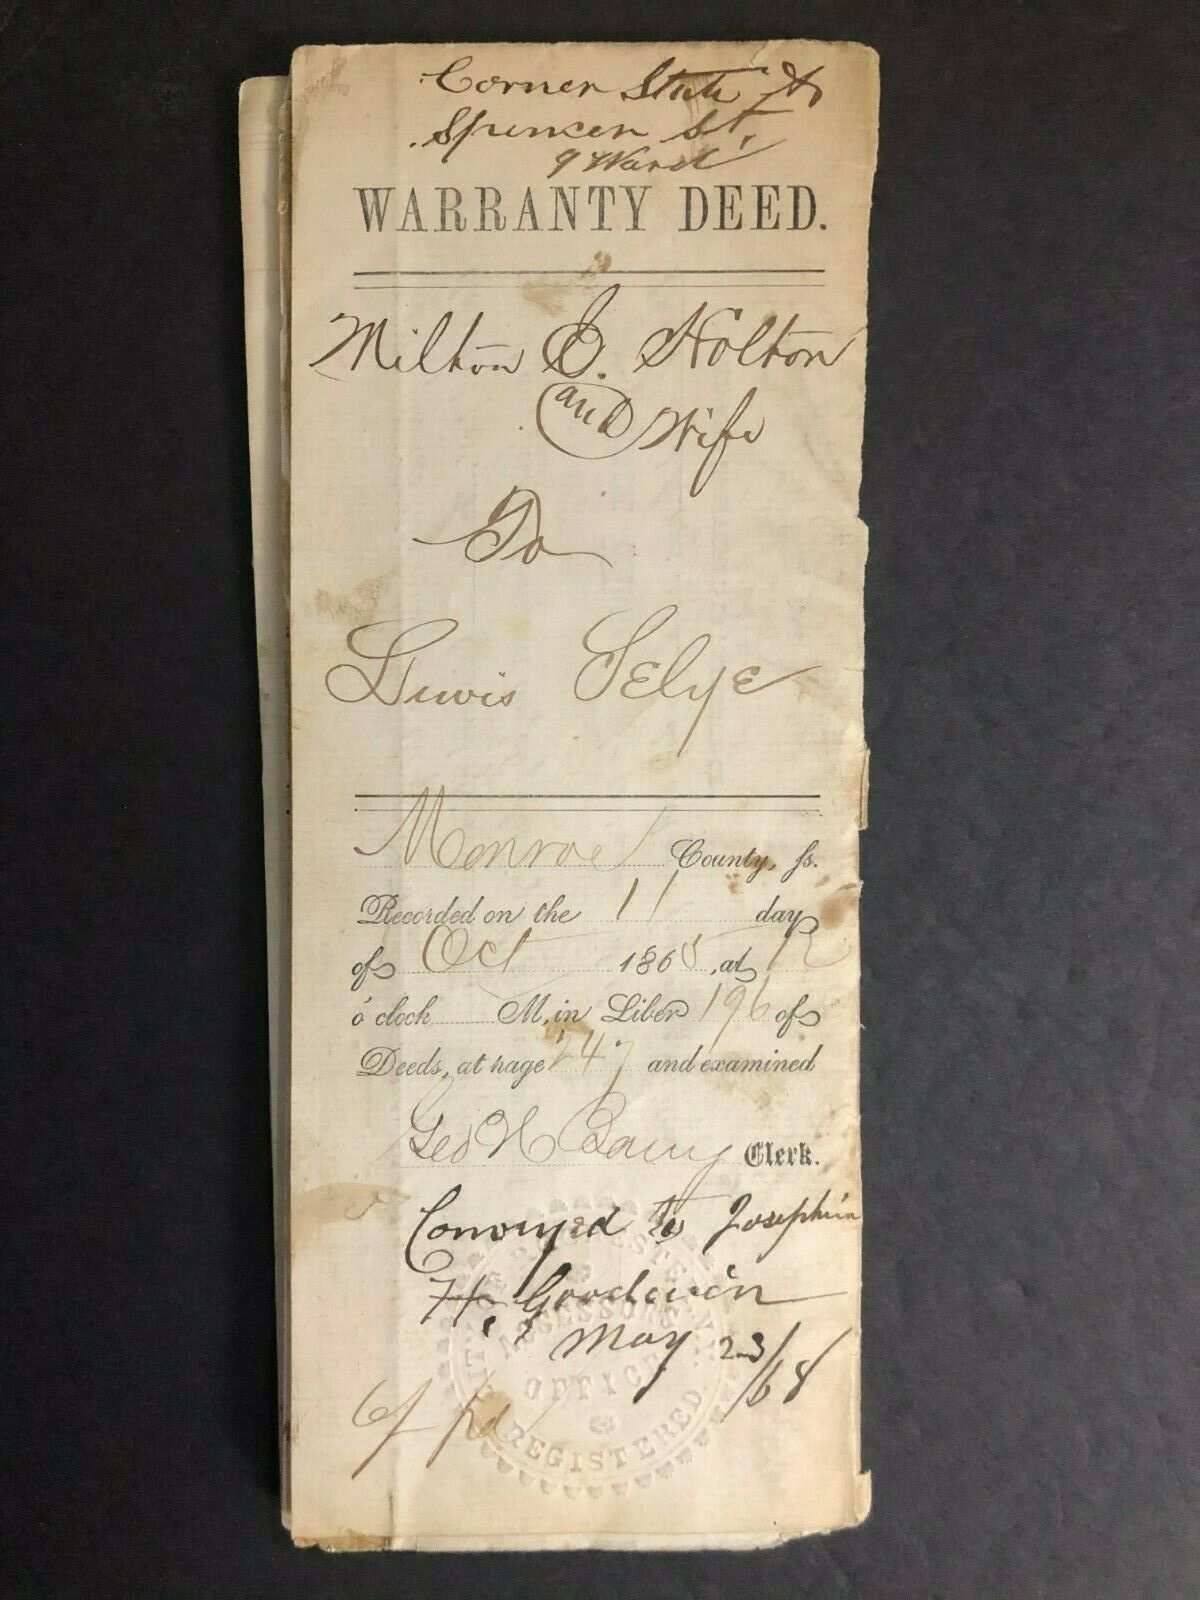 Corner State &
Spencer St.
9 Ward
WARRANTY DEED.
Milton Holton
and Wife
To
Lewis Selye
Monroe County, ss.
Recorded on the 11 day
of Oct 1865, at 12
o'clock M, in Liber 196 of
Deeds, at page 247 and examined
Geo H Barry Clerk.
Conveyed to Josephine
H. Goodwin
May 23/68
ROCHESTER
ASSESSORS
OFFICE
REGISTERED.